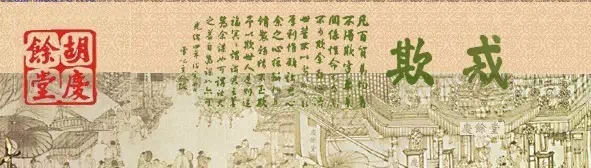 戒欺
凡百貿易均着
不得欺字藥業
關係性命尤為
不可欺余存心
世誓不以劣品
厚利惟願諸君心
余之心採辦務真
製務精不至欺
予以欺世人是則造
福冥冥謂諸君之善
為余謀也可謂諸君
之善自為謀也亦可
光緒四年
胡慶餘堂
慶餘堂